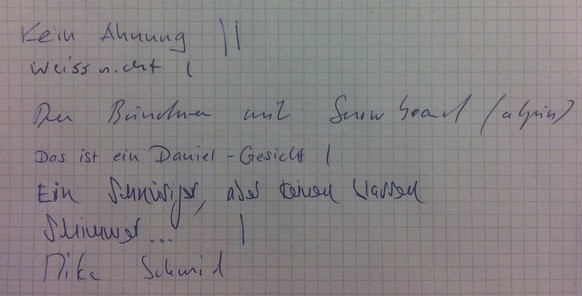 Kein Ahnung ||
weiss nicht |
Der Bündner mit Snowboard (alpin)
Das ist ein Daniel-Gesicht |
Ein Schwiizer, aber keinen blassen
Schimmer... |
Mike Schmid